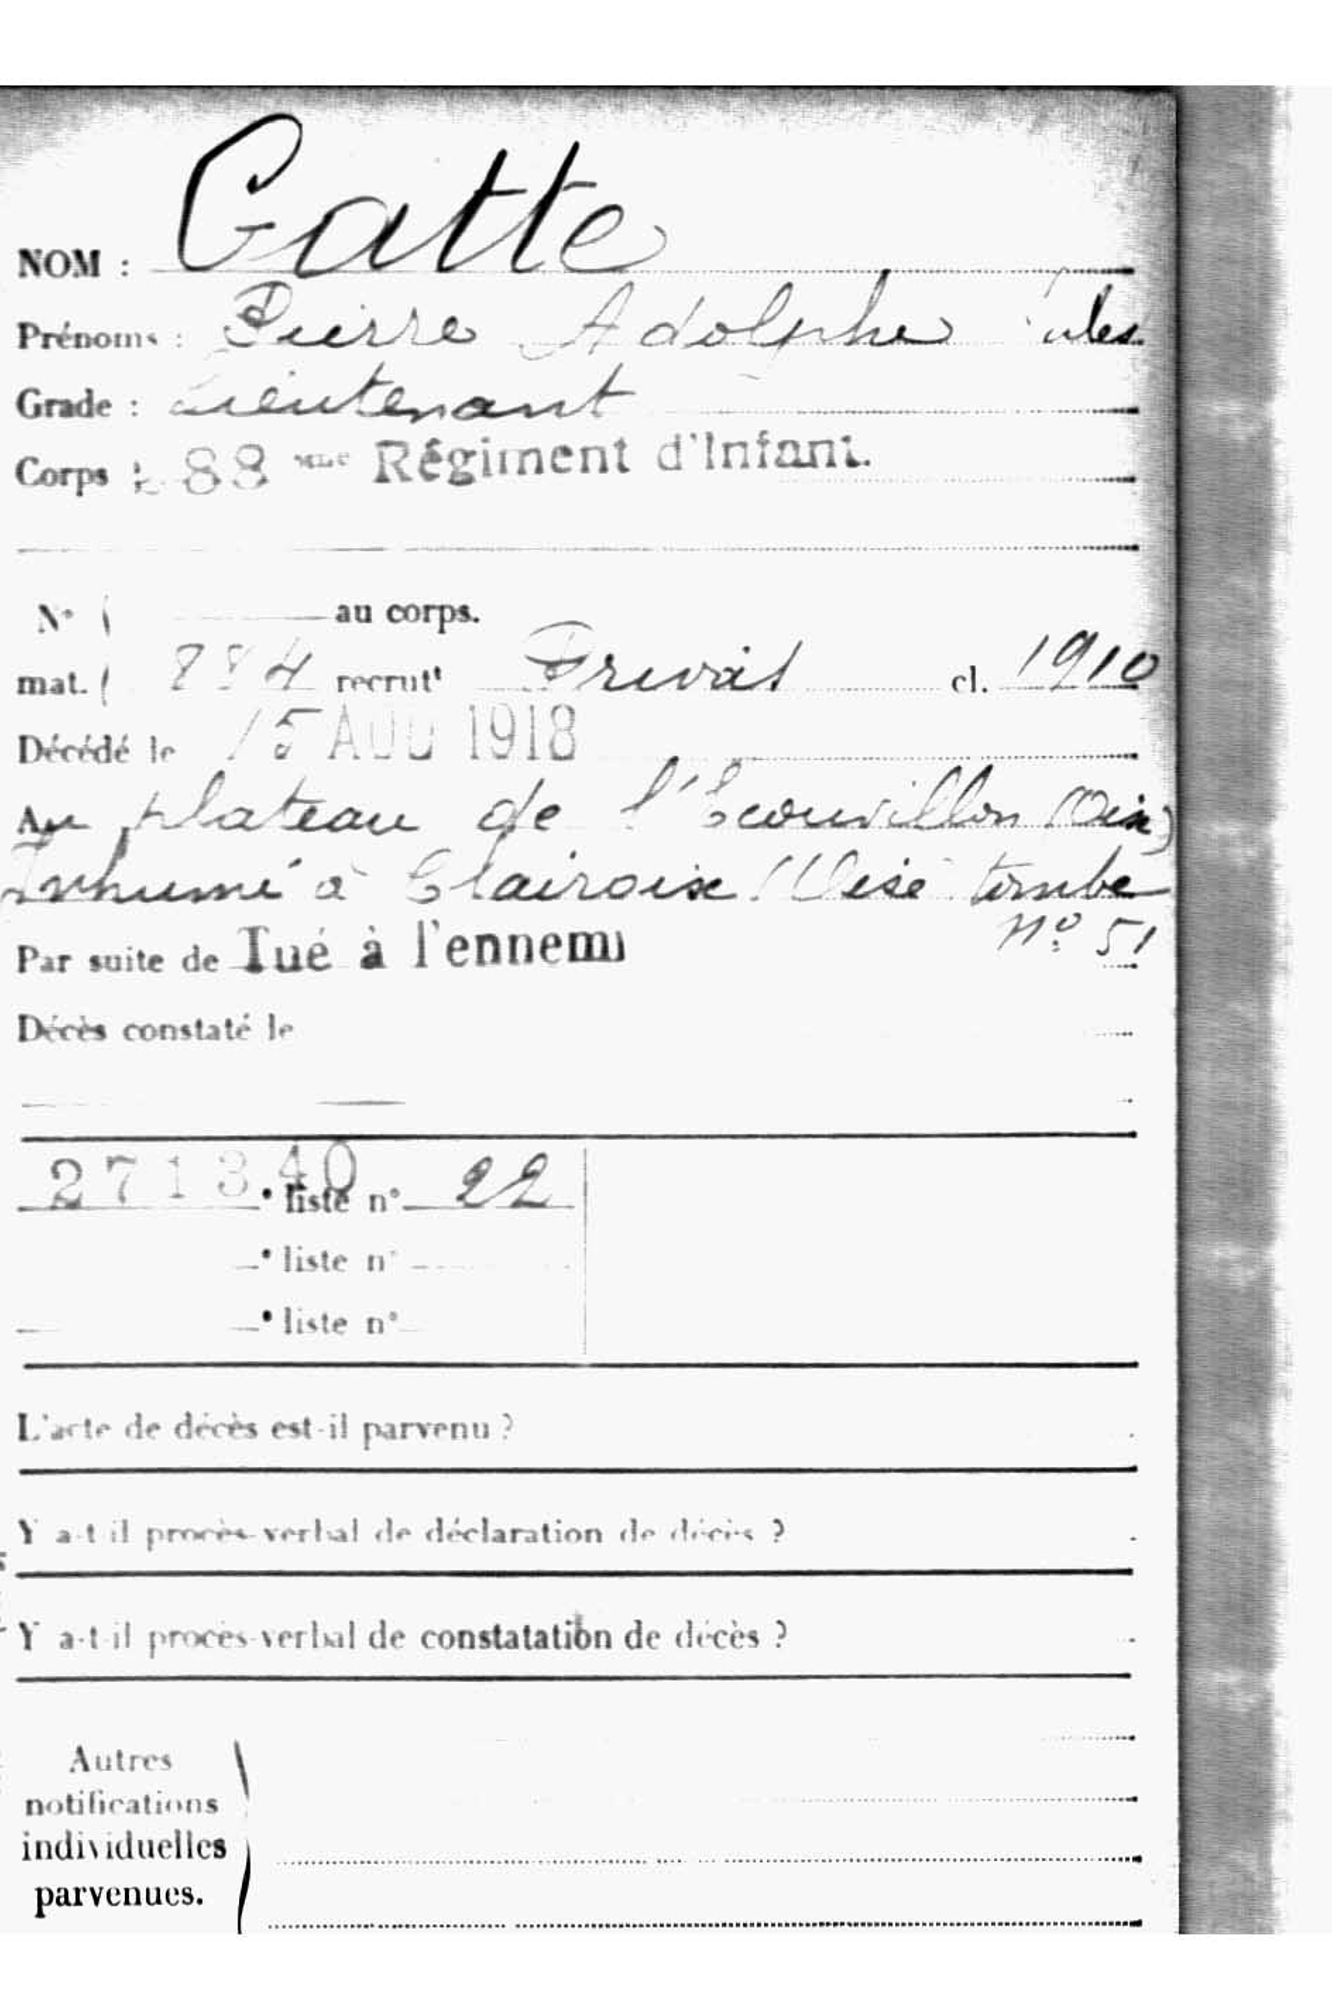 NOM : Gatte
Prénoms : Pierre Adolphe Jules
Grade : Lieutenant
Corps : 88 me Régiment d'Infant.
N° au corps.
mat. 884 recrut' Privas cl. 1910
Décédé le 15 AOU 1918
Au plateau de l'Ecouvillon (Oise)
Inhumé à Clairoix (Oise tombe
n° 51
Par suite de Tué à l'ennemi
Décès constaté le
271340 • liste n° 22
• liste n°
• liste n°
L'acte de décès est-il parvenu ?
Y a-t-il procès-verbal de déclaration de décès ?
Y a-t-il procès-verbal de constatation de décès ?
Autres
notifications
individuelles
parvenues.